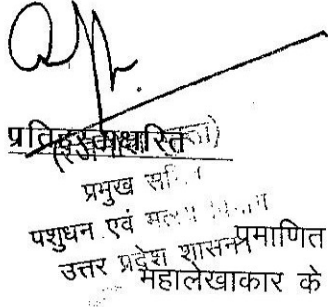 प्रतिहस्ताक्षरित
प्रमुख
पशुधन एवं मत्स्य विभाग
उत्तर प्रदेश शासन
प्रमाणित
महालेखाकार के